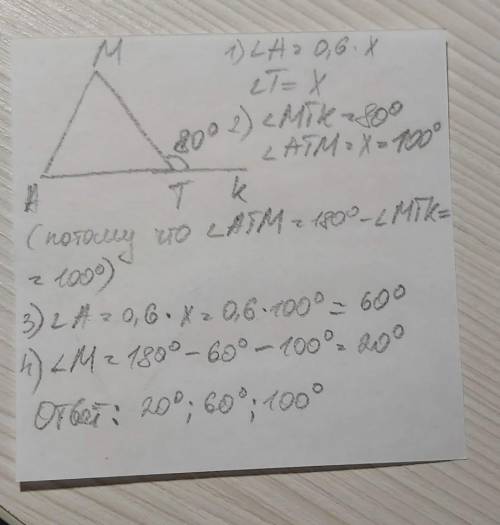 M
1) ∠A = 0,6 · x
∠T = x
80°
2) ∠MTK = 80°
∠ATM = x = 100°
A T K
(потому что ∠ATM = 180° - ∠MTK =
= 100°)
3) ∠A = 0,6 · x = 0,6 · 100° = 60°
4) ∠M = 180° - 60° - 100° = 20°
Ответ: 20°; 60°; 100°